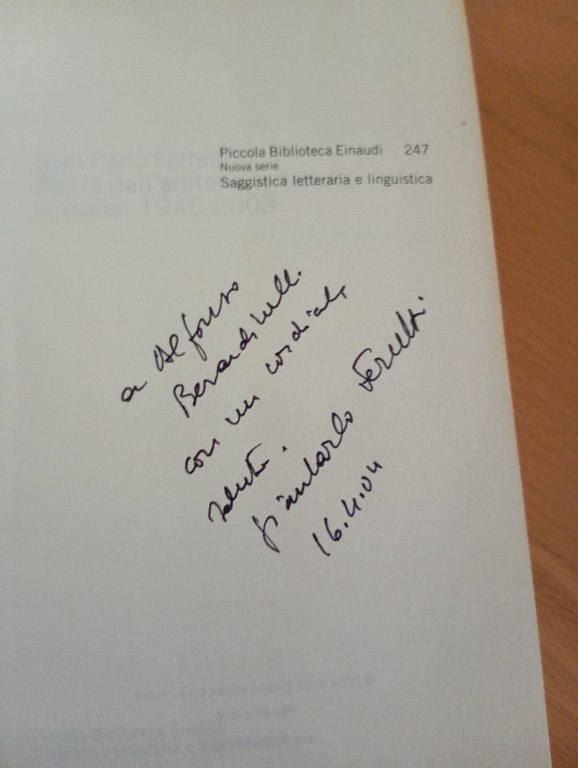 Piccola Biblioteca Einaudi 247
Nuova serie
Saggistica letteraria e linguistica
a Alfonso
Berardinelli
con un cordiale
saluto.
Giancarlo Ferretti
16.4.04